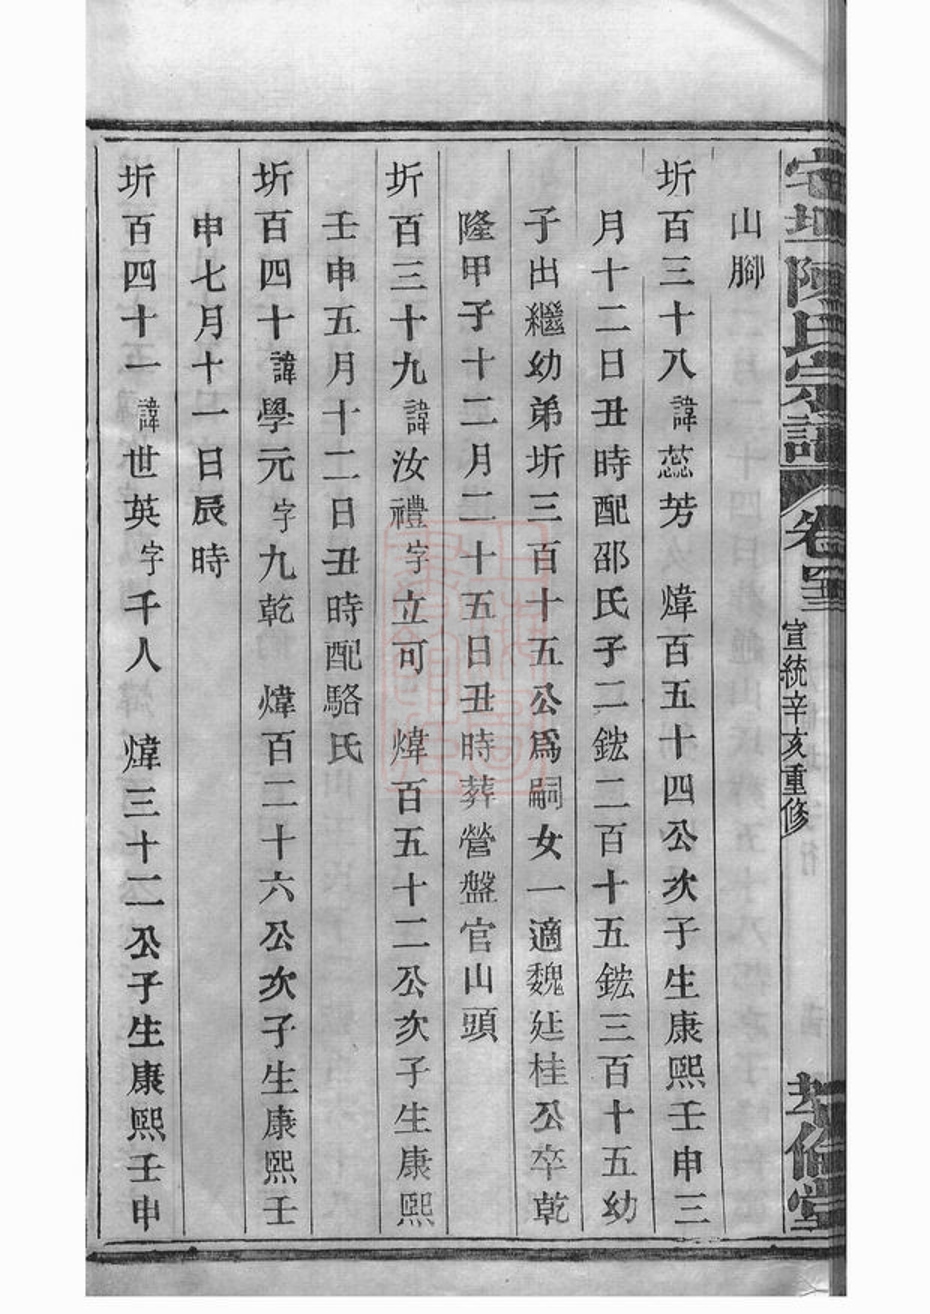 宅坦陳氏宗譜 卷
宣統辛亥重修
堂
山腳
圻百三十八諱蕊芳 煒百五十四公次子生康熙壬申三
月十二日丑時配邵氏子二鋐二百十五鋐三百十五幼
子出繼幼弟圻三百十五公爲嗣女一適魏廷桂公卒乾
隆甲子十二月二十五日丑時葬營盤官山頭
圻百三十九諱汝禮字立可 煒百五十二公次子生康熙
壬申五月十二日丑時配駱氏
圻百四十諱學元字九乾 煒百二十六公次子生康熙壬
申七月十一日辰時
圻百四十一諱世英字千人 煒三十二公子生康熙壬申